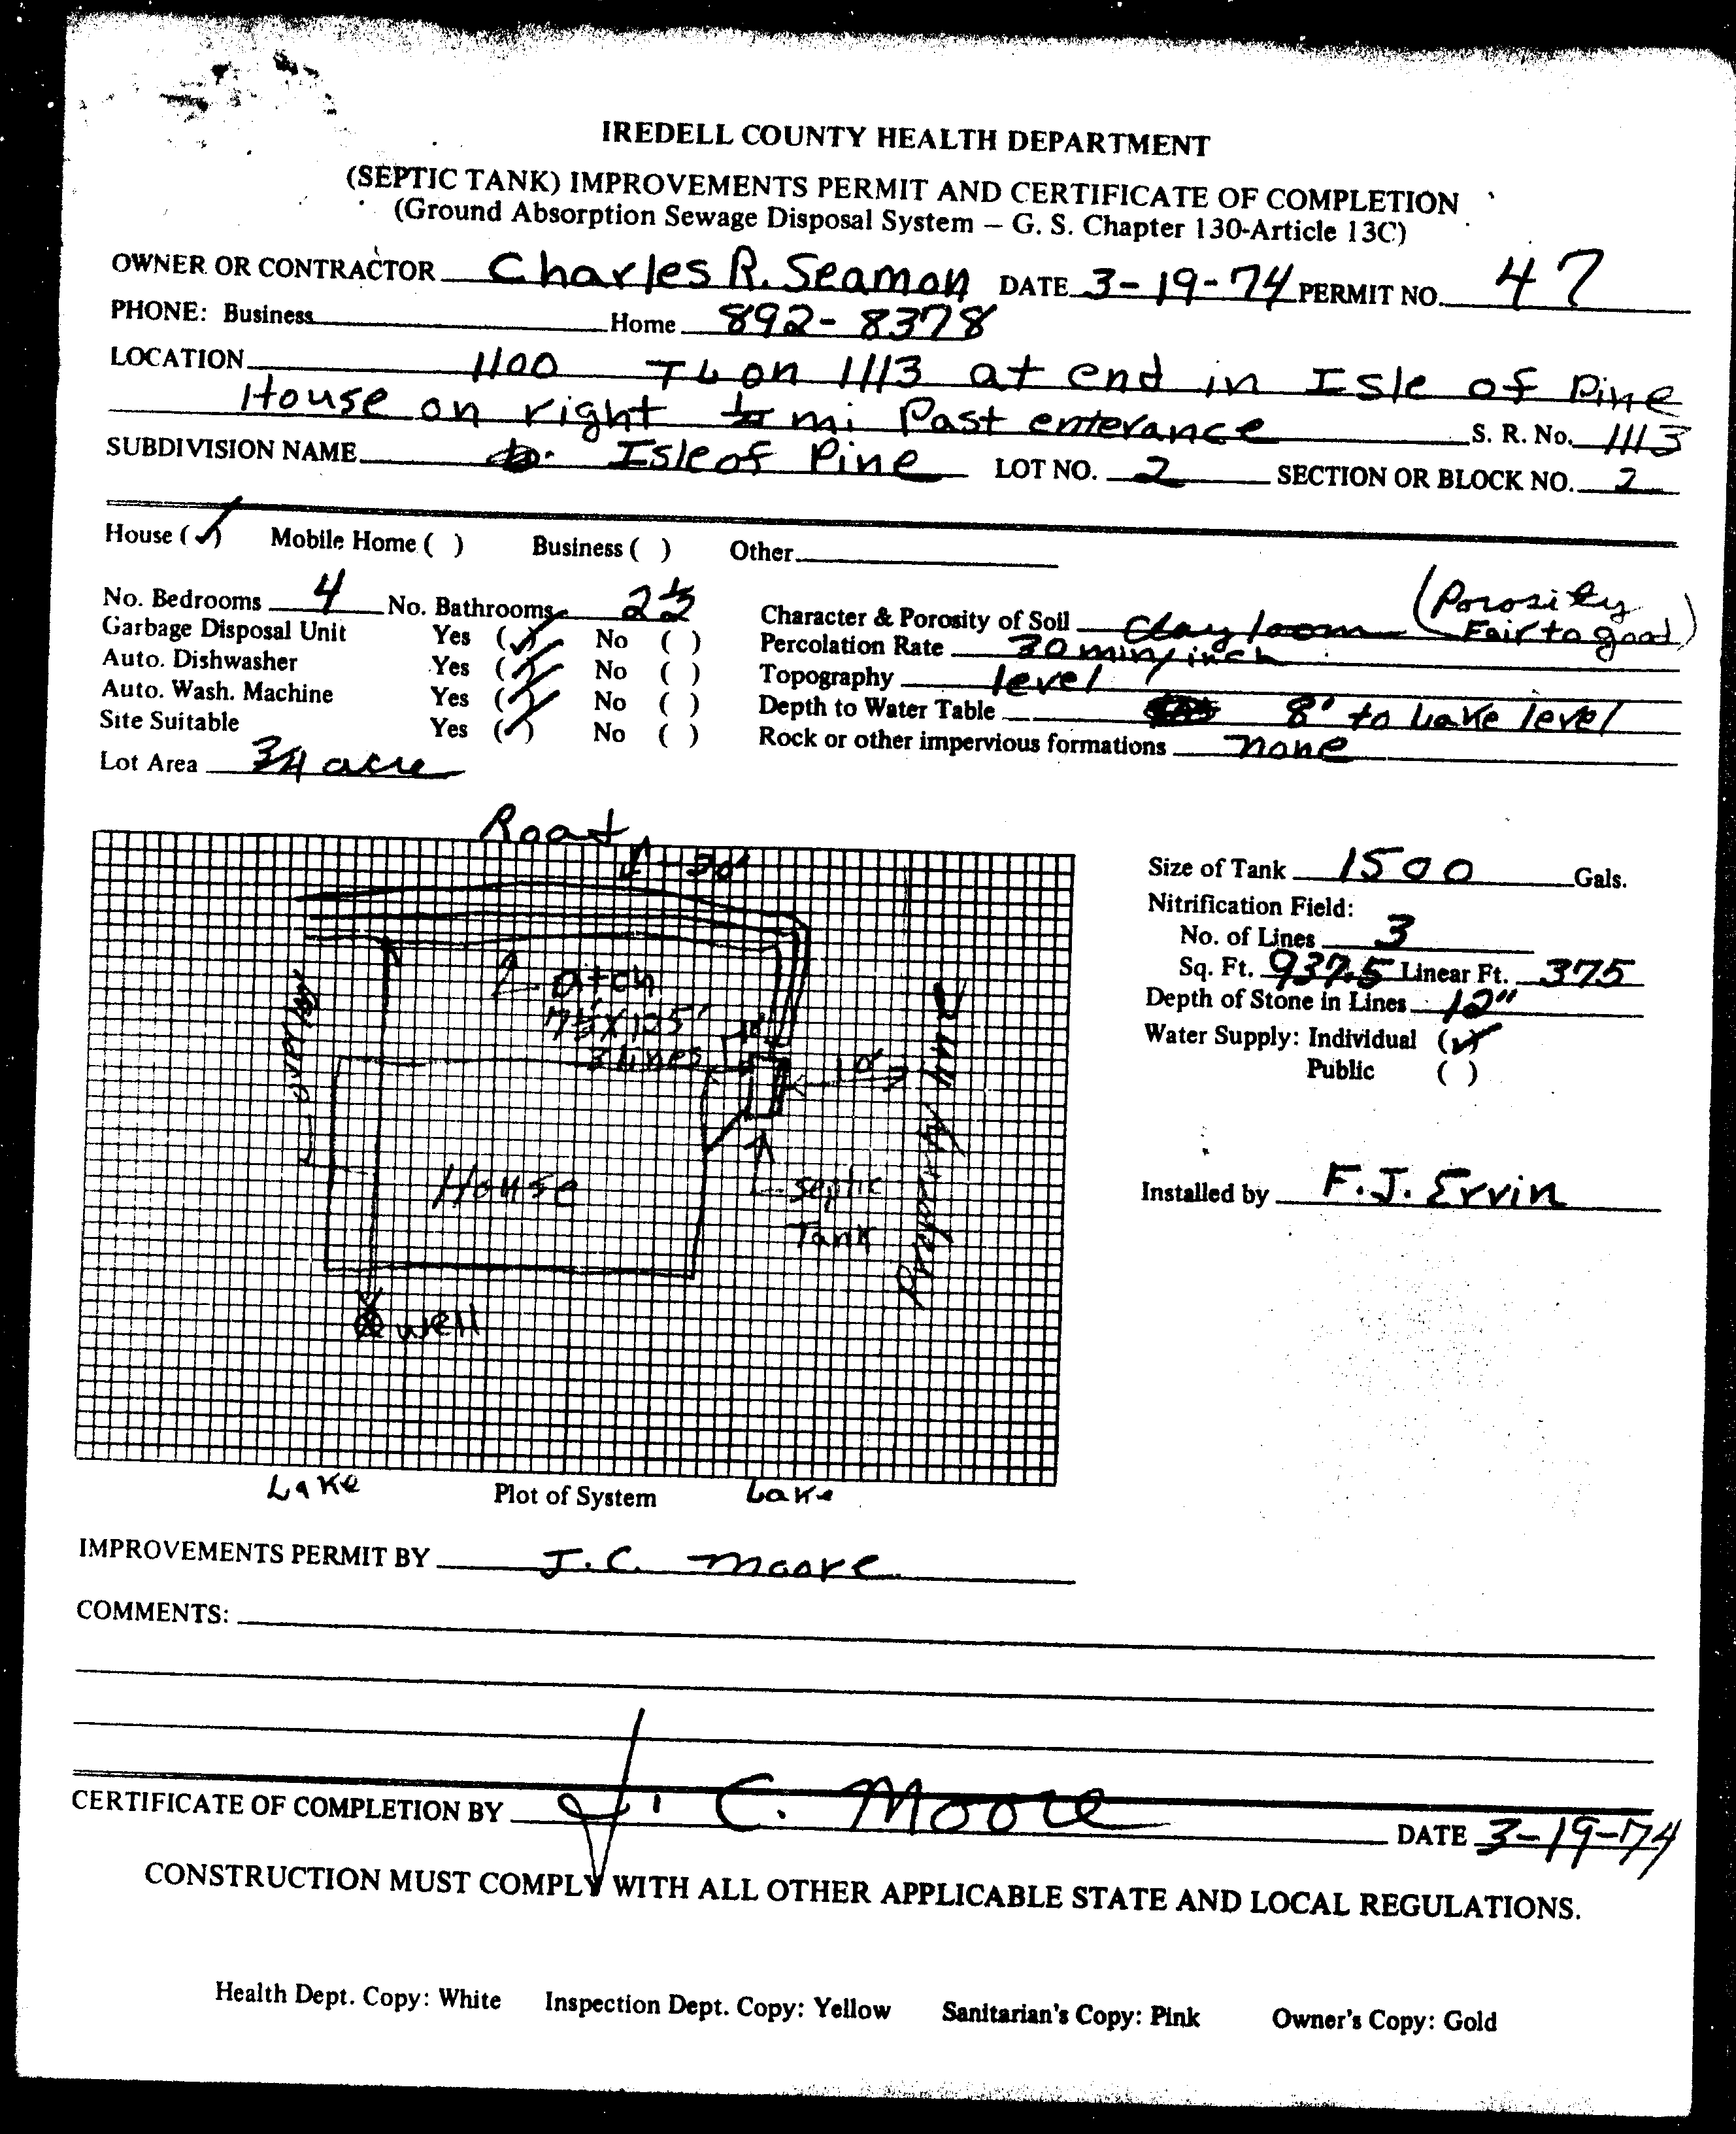 IREDELL COUNTY HEALTH DEPARTMENT
(SEPTIC TANK) IMPROVEMENTS PERMIT AND CERTIFICATE OF COMPLETION
(Ground Absorption Sewage Disposal System – G. S. Chapter 130-Article 13C)
OWNER OR CONTRACTOR Charles R. Seamon DATE 3-19-74 PERMIT NO. 47
PHONE: Business Home 892-8378
LOCATION 1100 TL on 1113 at end in Isle of Pine
House on right mi Past enterance S. R. No. 1113
SUBDIVISION NAME Isle of Pine LOT NO. 2 SECTION OR BLOCK NO. 2
House (✓) Mobile Home ( ) Business ( ) Other
No. Bedrooms 4 No. Bathrooms 2½ Character & Porosity of Soil clay loom (Porosity Fair to good)
Garbage Disposal Unit Yes (✓) No ( ) Percolation Rate 30 min/inch
Auto. Dishwasher Yes (✓) No ( ) Topography level
Auto. Wash. Machine Yes (✓) No ( ) Depth to Water Table 8' to Lake level
Site Suitable Yes (✓) No ( ) Rock or other impervious formations none
Lot Area 3/4 acre
Road
30'
Ditch
x 125'
3 lines
10'
House
Septic
Tank
Property
well
Lake Plot of System Lake
Size of Tank 1500 Gals.
Nitrification Field:
No. of Lines 3
Sq. Ft. 937.5 Linear Ft. 375
Depth of Stone in Lines 12"
Water Supply: Individual (✓)
Public ( )
Installed by F.J. Ervin
IMPROVEMENTS PERMIT BY J.C. Moore
COMMENTS:
CERTIFICATE OF COMPLETION BY J. C. Moore DATE 3-19-74
CONSTRUCTION MUST COMPLY WITH ALL OTHER APPLICABLE STATE AND LOCAL REGULATIONS.
Health Dept. Copy: White Inspection Dept. Copy: Yellow Sanitarian's Copy: Pink Owner's Copy: Gold